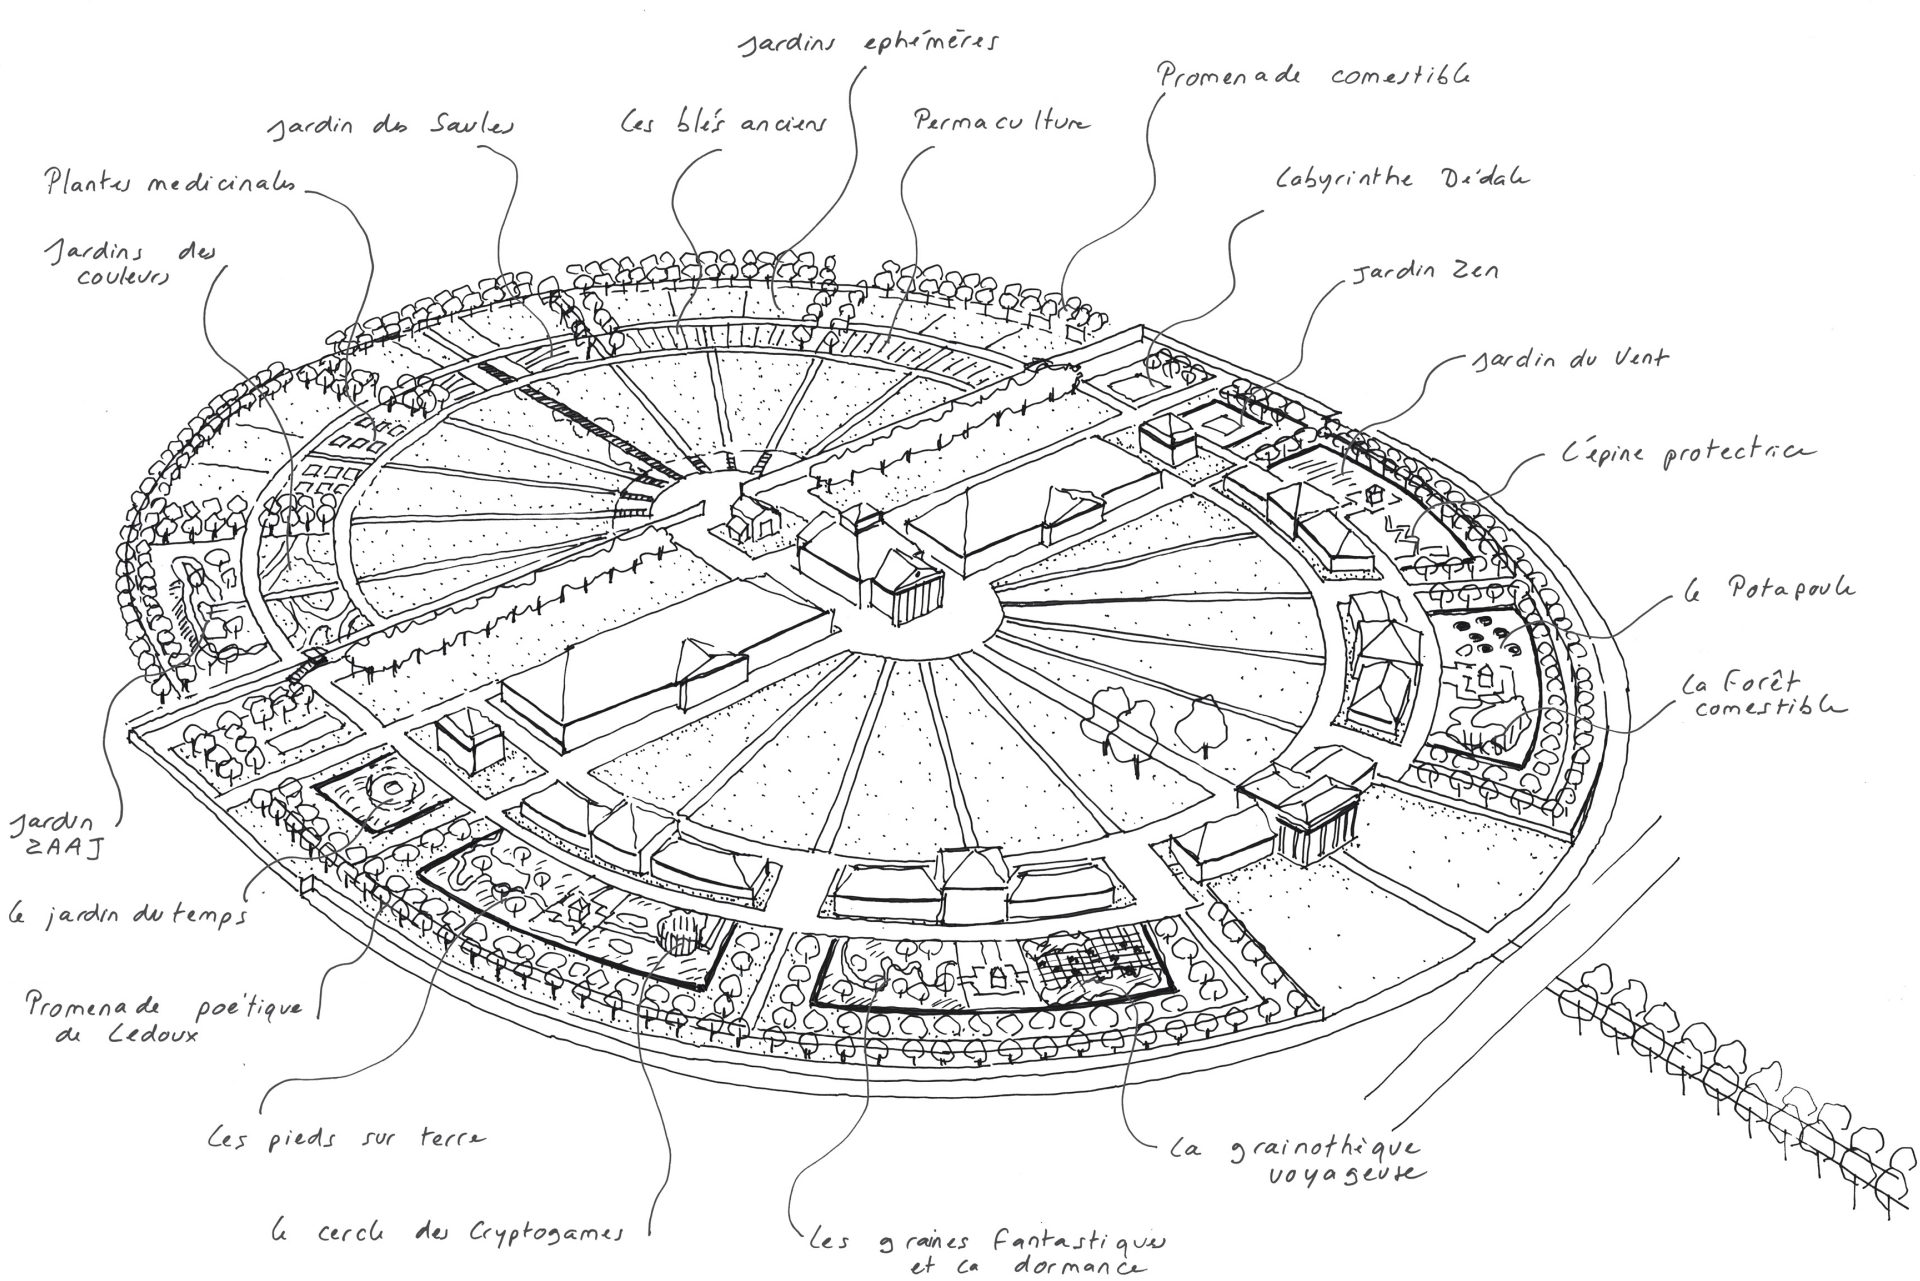 Jardins ephémères
Promenade comestible
Jardin des Saules
Les blés anciens
Permaculture
Plantes medicinales
Labyrinthe Dédale
Jardins des
couleurs
Jardin Zen
Jardin du Vent
L'épine protectrice
Le Potapoule
La Forêt
comestible
Jardin
ZAAJ
Le jardin du temps
Promenade poétique
de Ledoux
Les pieds sur terre
La grainothèque
voyageuse
Le cercle des Cryptogames
Les graines fantastiques
et la dormance